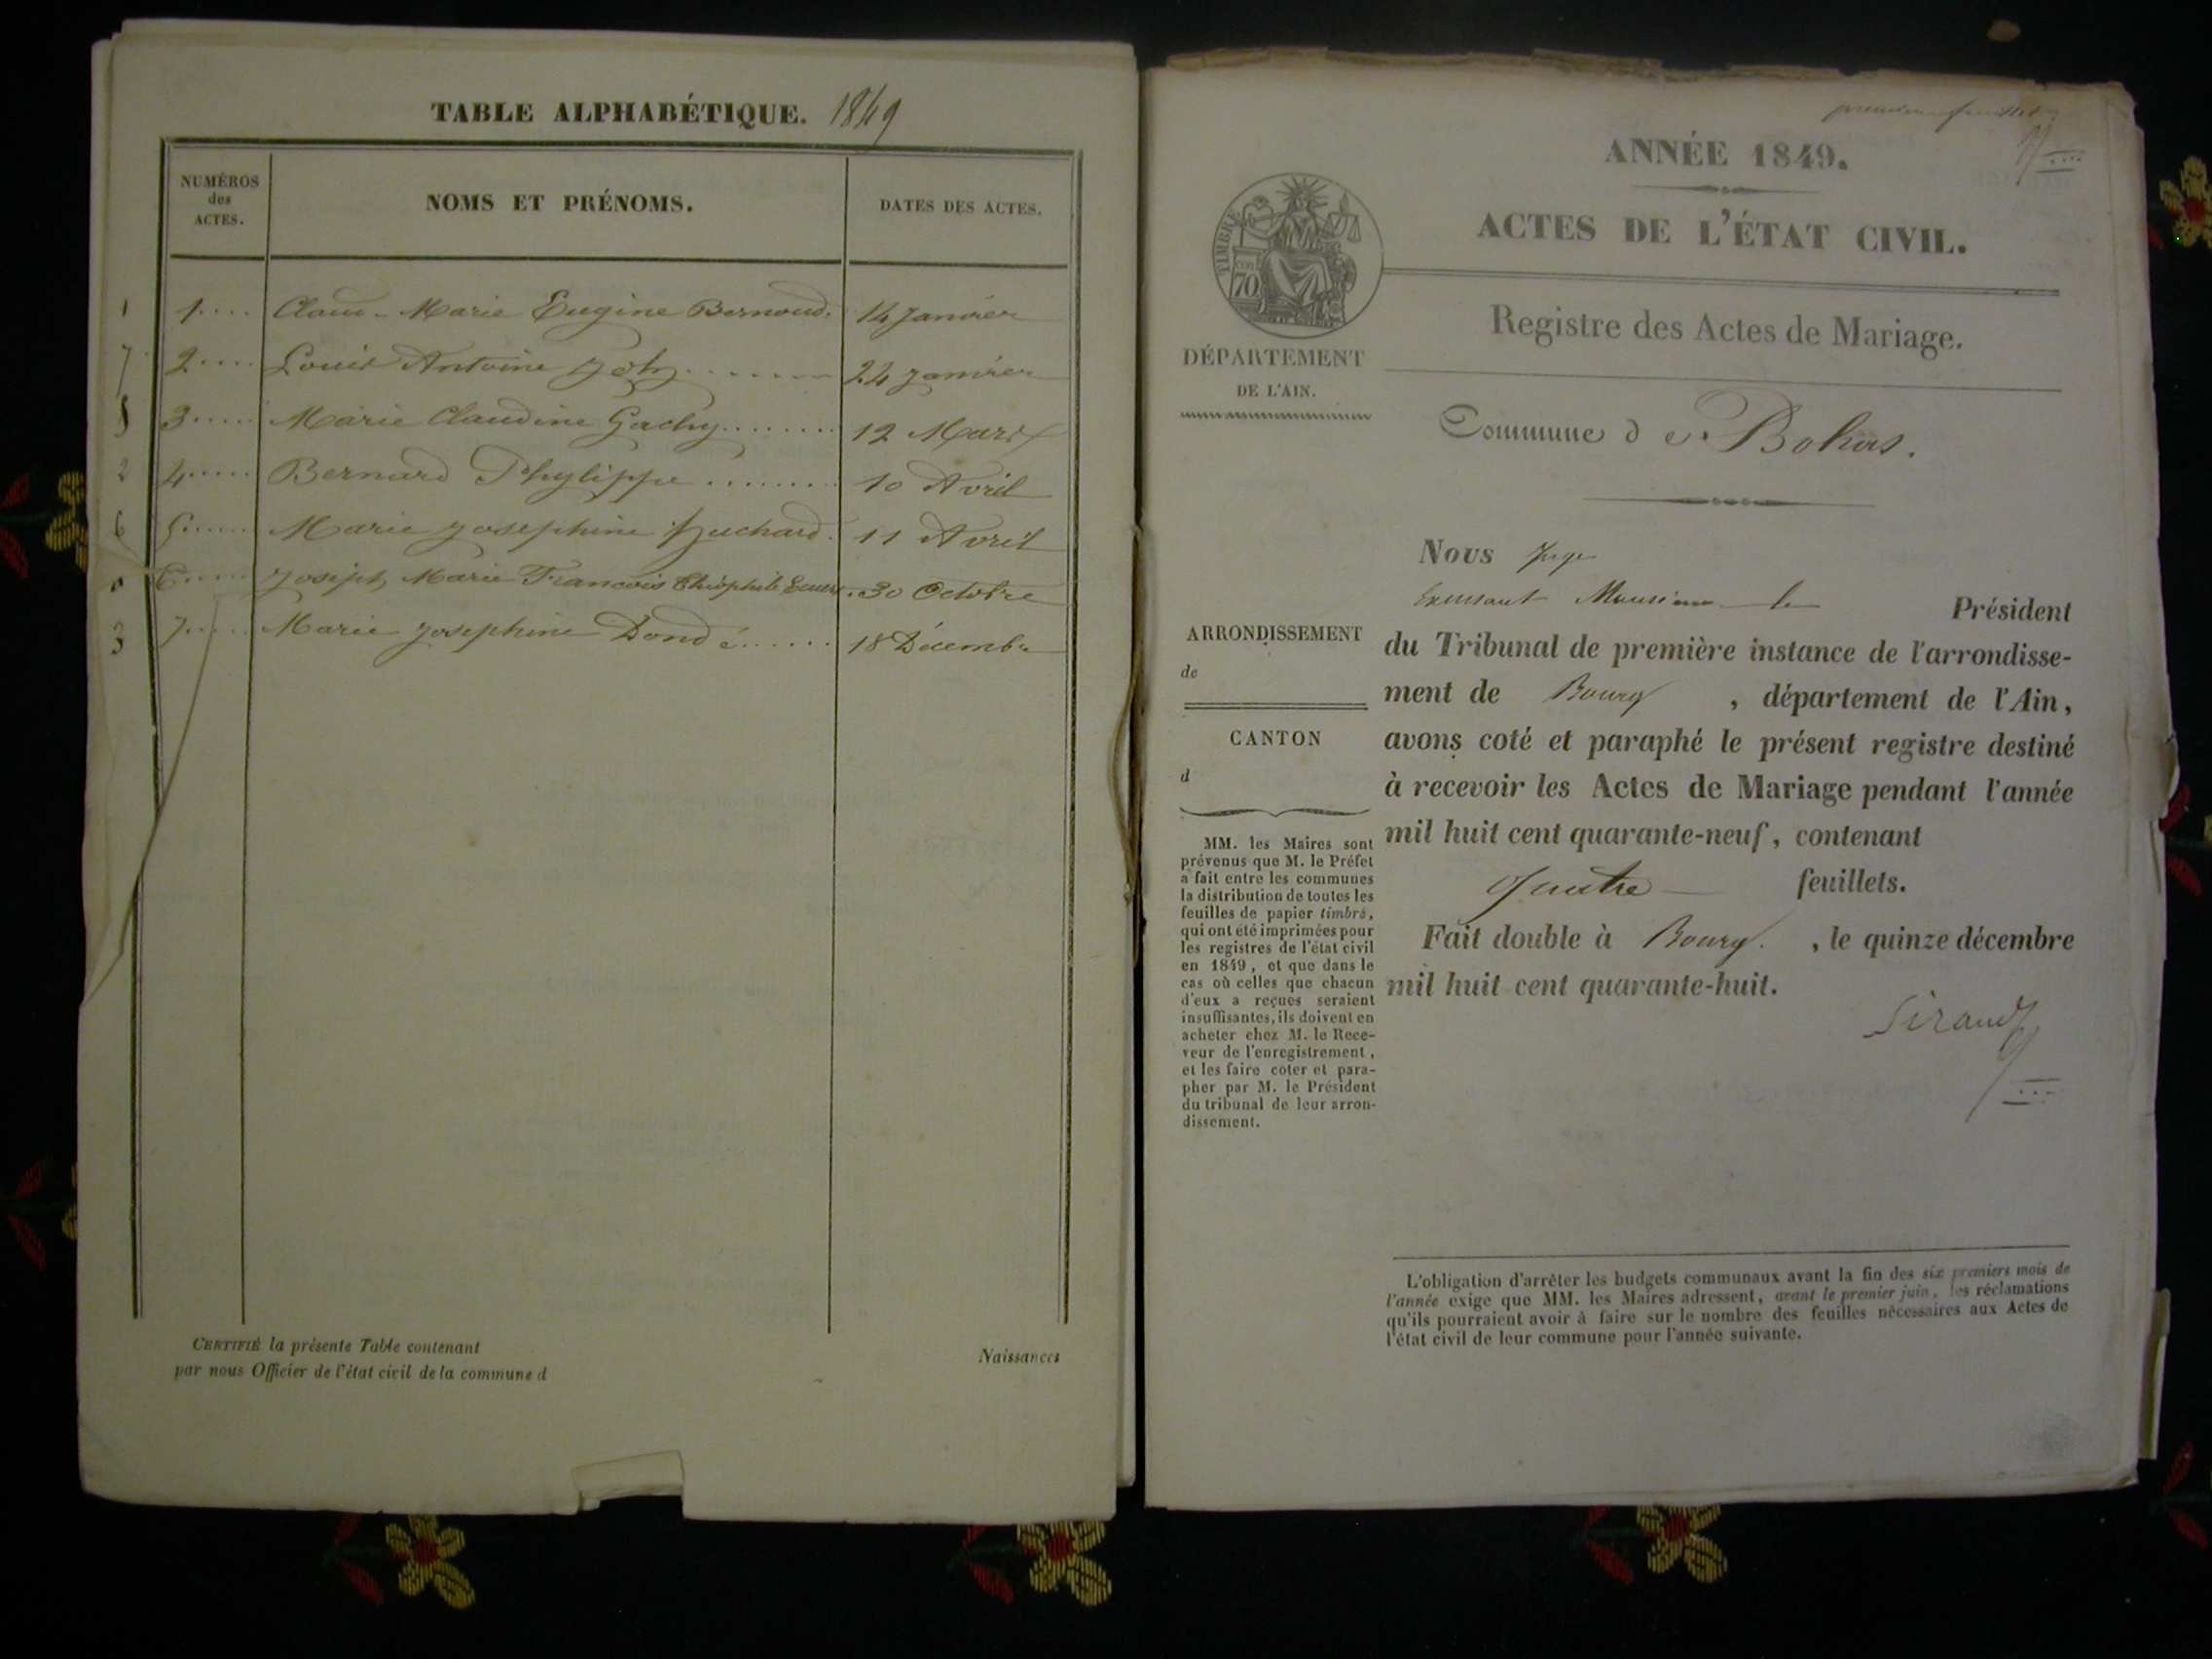 TABLE ALPHABÉTIQUE. 1849
NUMÉROS
des
ACTES.
NOMS ET PRÉNOMS.
DATES DES ACTES.
1 1.... Claud. Marie Eugine Bernoud. 14 Janvier
7 2.... Louis Antoine 24 Janvier
3.... Marie Claudine Gachy........ 12 Mars
2 4.... Bernard Phylippe........ 10 Avril
6 5.... Marie Josephine Huchard. 11 Avril
6.... Joseph Marie Francois Théophile 30 Octobre
3 7.... Marie Josephine Dondé...... 18 Décembre
CERTIFIÉ la présente Table contenant
par nous Officier de l'état civil de la commune d
Naissances
premier feuillet
ANNÉE 1849.
ACTES DE L'ÉTAT CIVIL.
Registre des Actes de Mariage.
TIMBRE
70
DÉPARTEMENT
DE L'AIN.
Commune d e Bohas.
Nous Juge
Exerçant Monsieur le Président
du Tribunal de première instance de l'arrondisse-
ment de Bourg , département de l'Ain,
avons coté et paraphé le présent registre destiné
à recevoir les Actes de Mariage pendant l'année
mil huit cent quarante-neuf, contenant
quatre feuillets.
Fait double à Bourg. , le quinze décembre
mil huit cent quarante-huit.
Sirand
ARRONDISSEMENT
de
CANTON
d
MM. les Maires sont
prévenus que M. le Préfet
a fait entre les communes
la distribution de toutes les
feuilles de papier timbré,
qui ont été imprimées pour
les registres de l'état civil
en 1849, et que dans le
cas où celles que chacun
d'eux a reçues seraient
insuffisantes, ils doivent en
acheter chez M. le Rece-
veur de l'enregistrement,
et les faire coter et para-
pher par M. le Président
du tribunal de leur arron-
dissement.
L'obligation d'arrêter les budgets communaux avant la fin des six premiers mois de
l'année exige que MM. les Maires adressent, avant le premier juin, les réclamations
qu'ils pourraient avoir à faire sur le nombre des feuilles nécessaires aux Actes de
l'état civil de leur commune pour l'année suivante.